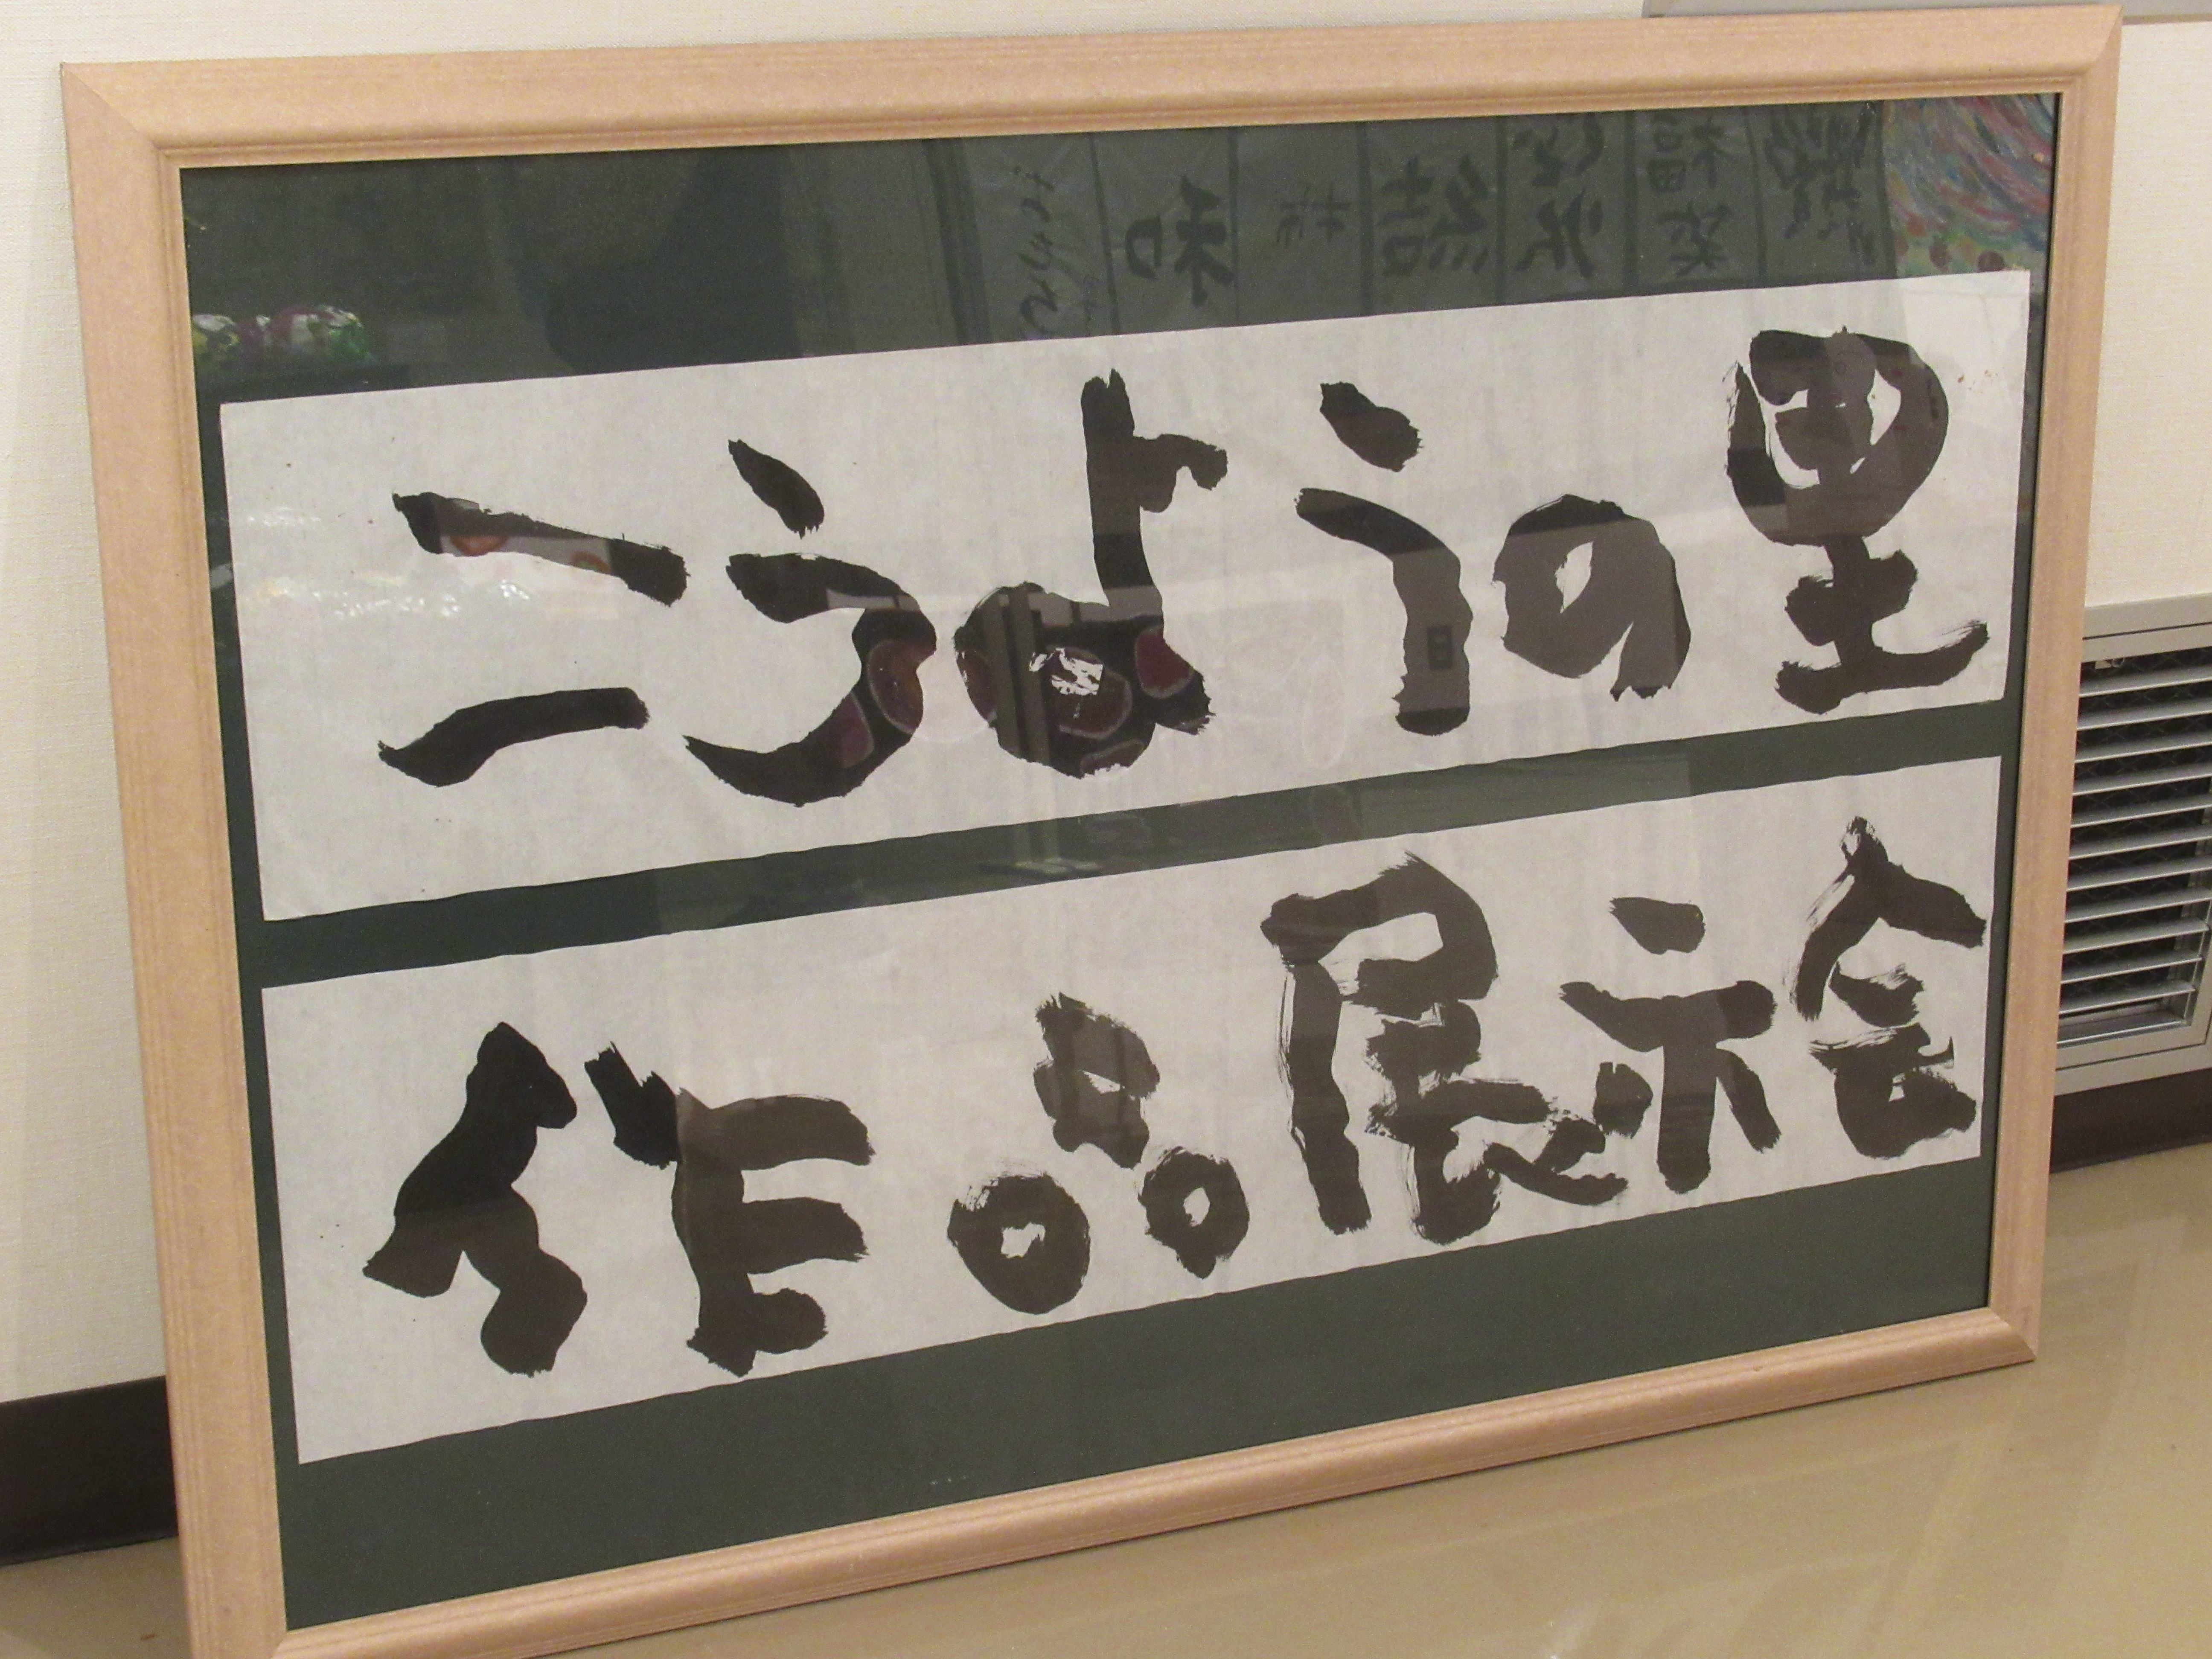 こうようの里
作品展示会